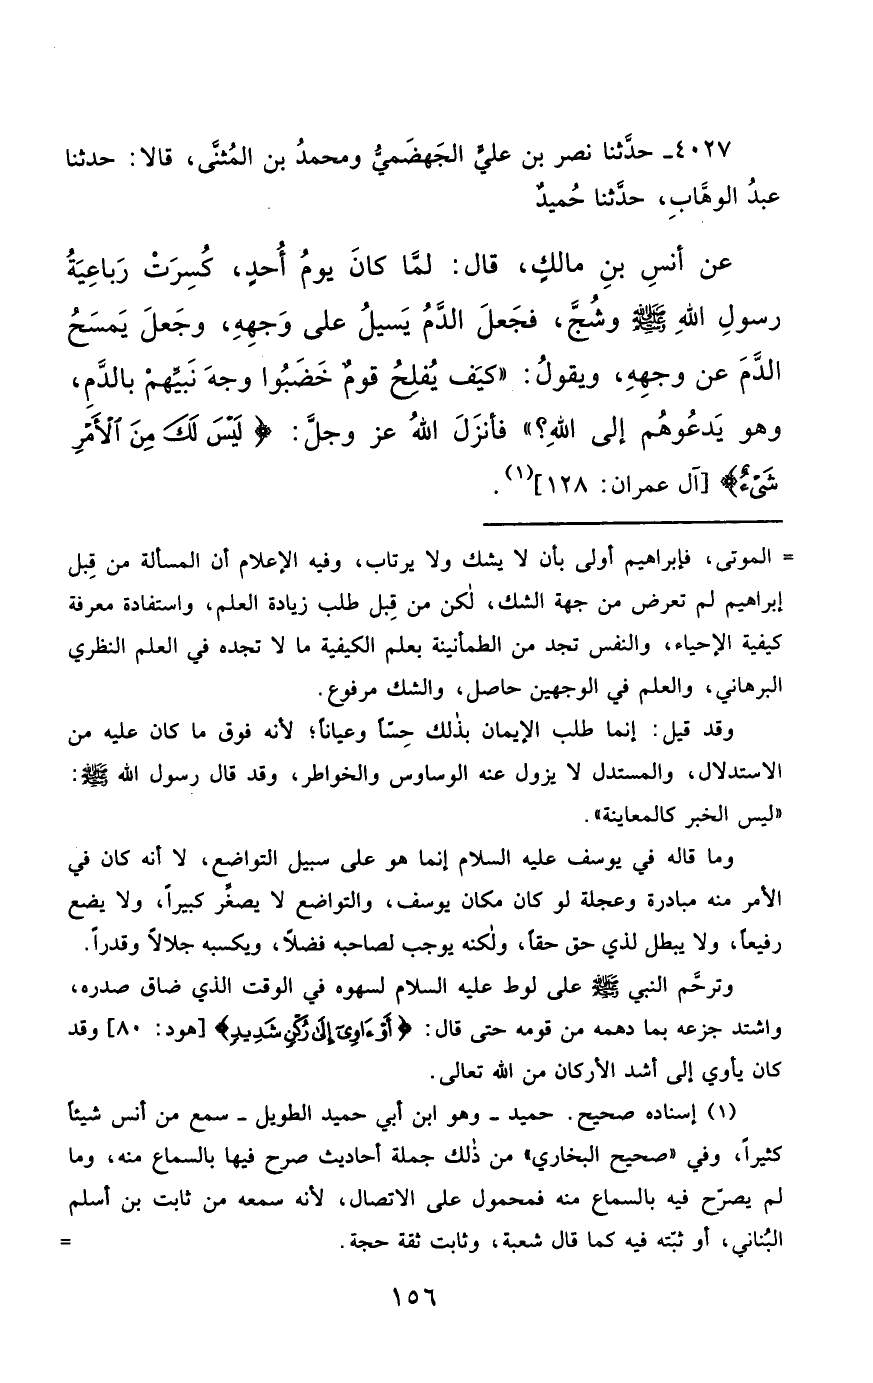 ٤٠٢٧ـ حدَّثنا نصر بن عليٍّ الجَهضَميُّ ومحمدُ بن المُثنَّى، قالا: حدثنا
عبدُ الوهَّابِ، حدَّثنا حُميدٌ
عن أنسِ بنِ مالكٍ، قال: لمَّا كانَ يومُ أُحدٍ، كُسِرَتْ رَباعِيَةُ
رسولِ اللهِ ﷺ وشُجَّ، فجَعلَ الدَّمُ يَسيلُ على وَجهِهِ، وجَعلَ يَمسَحُ
الدَّمَ عن وجهِهِ، ويقولُ: «كيَف يُفلِحُ قومٌ خَضَبُوا وجهَ نَبيِّهمْ بالدَّمِ،
وهو يَدعُوهُم إلى اللهِ؟» فأنزَلَ اللهُ عز وجلَّ: ﴿لَيْسَ لَكَ مِنَ ٱلْأَمْرِ
شَىْءٌ﴾ [آل عمران: ١٢٨](١).
= الموتى، فإبراهيم أولى بأن لا يشك ولا يرتاب، وفيه الإعلام أن المسألة من قِبل
إبراهيم لم تعرض من جهة الشك، لٰكن من قِبل طلب زيادة العلم، واستفادة معرفة
كيفية الإحياء، والنفس تجد من الطمأنينة بعلم الكيفية ما لا تجده في العلم النظري
البرهاني، والعلم في الوجهين حاصل، والشك مرفوع.
وقد قيل: إنما طلب الإيمان بذٰلك حِسّاً وعياناً؛ لأنه فوق ما كان عليه من
الاستدلال، والمستدل لا يزول عنه الوساوس والخواطر، وقد قال رسول الله ﷺ:
«ليس الخبر كالمعاينة».
وما قاله في يوسف عليه السلام إنما هو على سبيل التواضع، لا أنه كان في
الأمر منه مبادرة وعجلة لو كان مكان يوسف، والتواضع لا يصغِّر كبيراً، ولا يضع
رفيعاً، ولا يبطل لذي حق حقاً، ولٰكنه يوجب لصاحبه فضلاً، ويكسبه جلالاً وقدراً.
وترحَّم النبي ﷺ على لوط عليه السلام لسهوه في الوقت الذي ضاق صدره،
واشتد جزعه بما دهمه من قومه حتى قال: ﴿أَوْ ءَاوِىٓ إِلَىٰ رُكْنٍ شَدِيدٍ﴾ [هود: ٨٠] وقد
كان يأوي إلى أشد الأركان من الله تعالى.
(١) إسناده صحيح. حميد ـ وهو ابن أبي حميد الطويل ـ سمع من أنس شيئاً
كثيراً، وفي «صحيح البخاري» من ذٰلك جملة أحاديث صرح فيها بالسماع منه، وما
لم يصرّح فيه بالسماع منه فمحمول على الاتصال، لأنه سمعه من ثابت بن أسلم
البُناني، أو ثبّته فيه كما قال شعبة، وثابت ثقة حجة. =
١٥٦